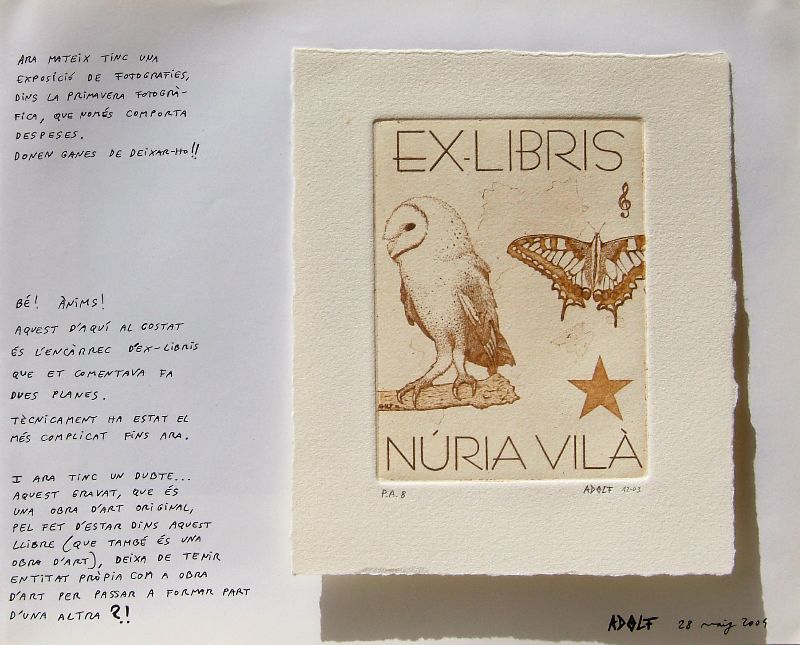 ARA MATEIX TINC UNA
EXPOSICIÓ DE FOTOGRAFIES,
DINS LA PRIMAVERA FOTOGRÀ-
FICA, QUE NOMÉS COMPORTA
DESPESES.
DONEN GANES DE DEIXAR-HO!!
BÉ! ÀNIMS!
AQUEST D'AQUÍ AL COSTAT
ÉS L'ENCÀRREC D'EX-LIBRIS
QUE ET COMENTAVA FA
DUES PLANES.
TÈCNICAMENT HA ESTAT EL
MÉS COMPLICAT FINS ARA.
I ARA TINC UN DUBTE...
AQUEST GRAVAT, QUE ÉS
UNA OBRA D'ART ORIGINAL,
PEL FET D'ESTAR DINS AQUEST
LLIBRE (QUE TAMBÉ ÉS UNA
OBRA D'ART), DEIXA DE TENIR
ENTITAT PRÒPIA COM A OBRA
D'ART PER PASSAR A FORMAR PART
D'UNA ALTRA ?!
EX-LIBRIS
NÚRIA VILÀ
P.A. 8
ADOLF 12-03
ADOLF 28 maig 2004